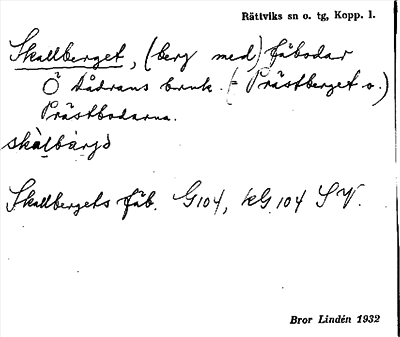 Rättviks sn o. tg, Kopp. l.
Skallberget, (berg med) fäbodar
Ö Dådrans bruk. (= Prästberget o.)
Prästbodarna.
skàlbàrjò
Skallbergets fäb. G104, kG 104 SV.
Bror Lindén 1932